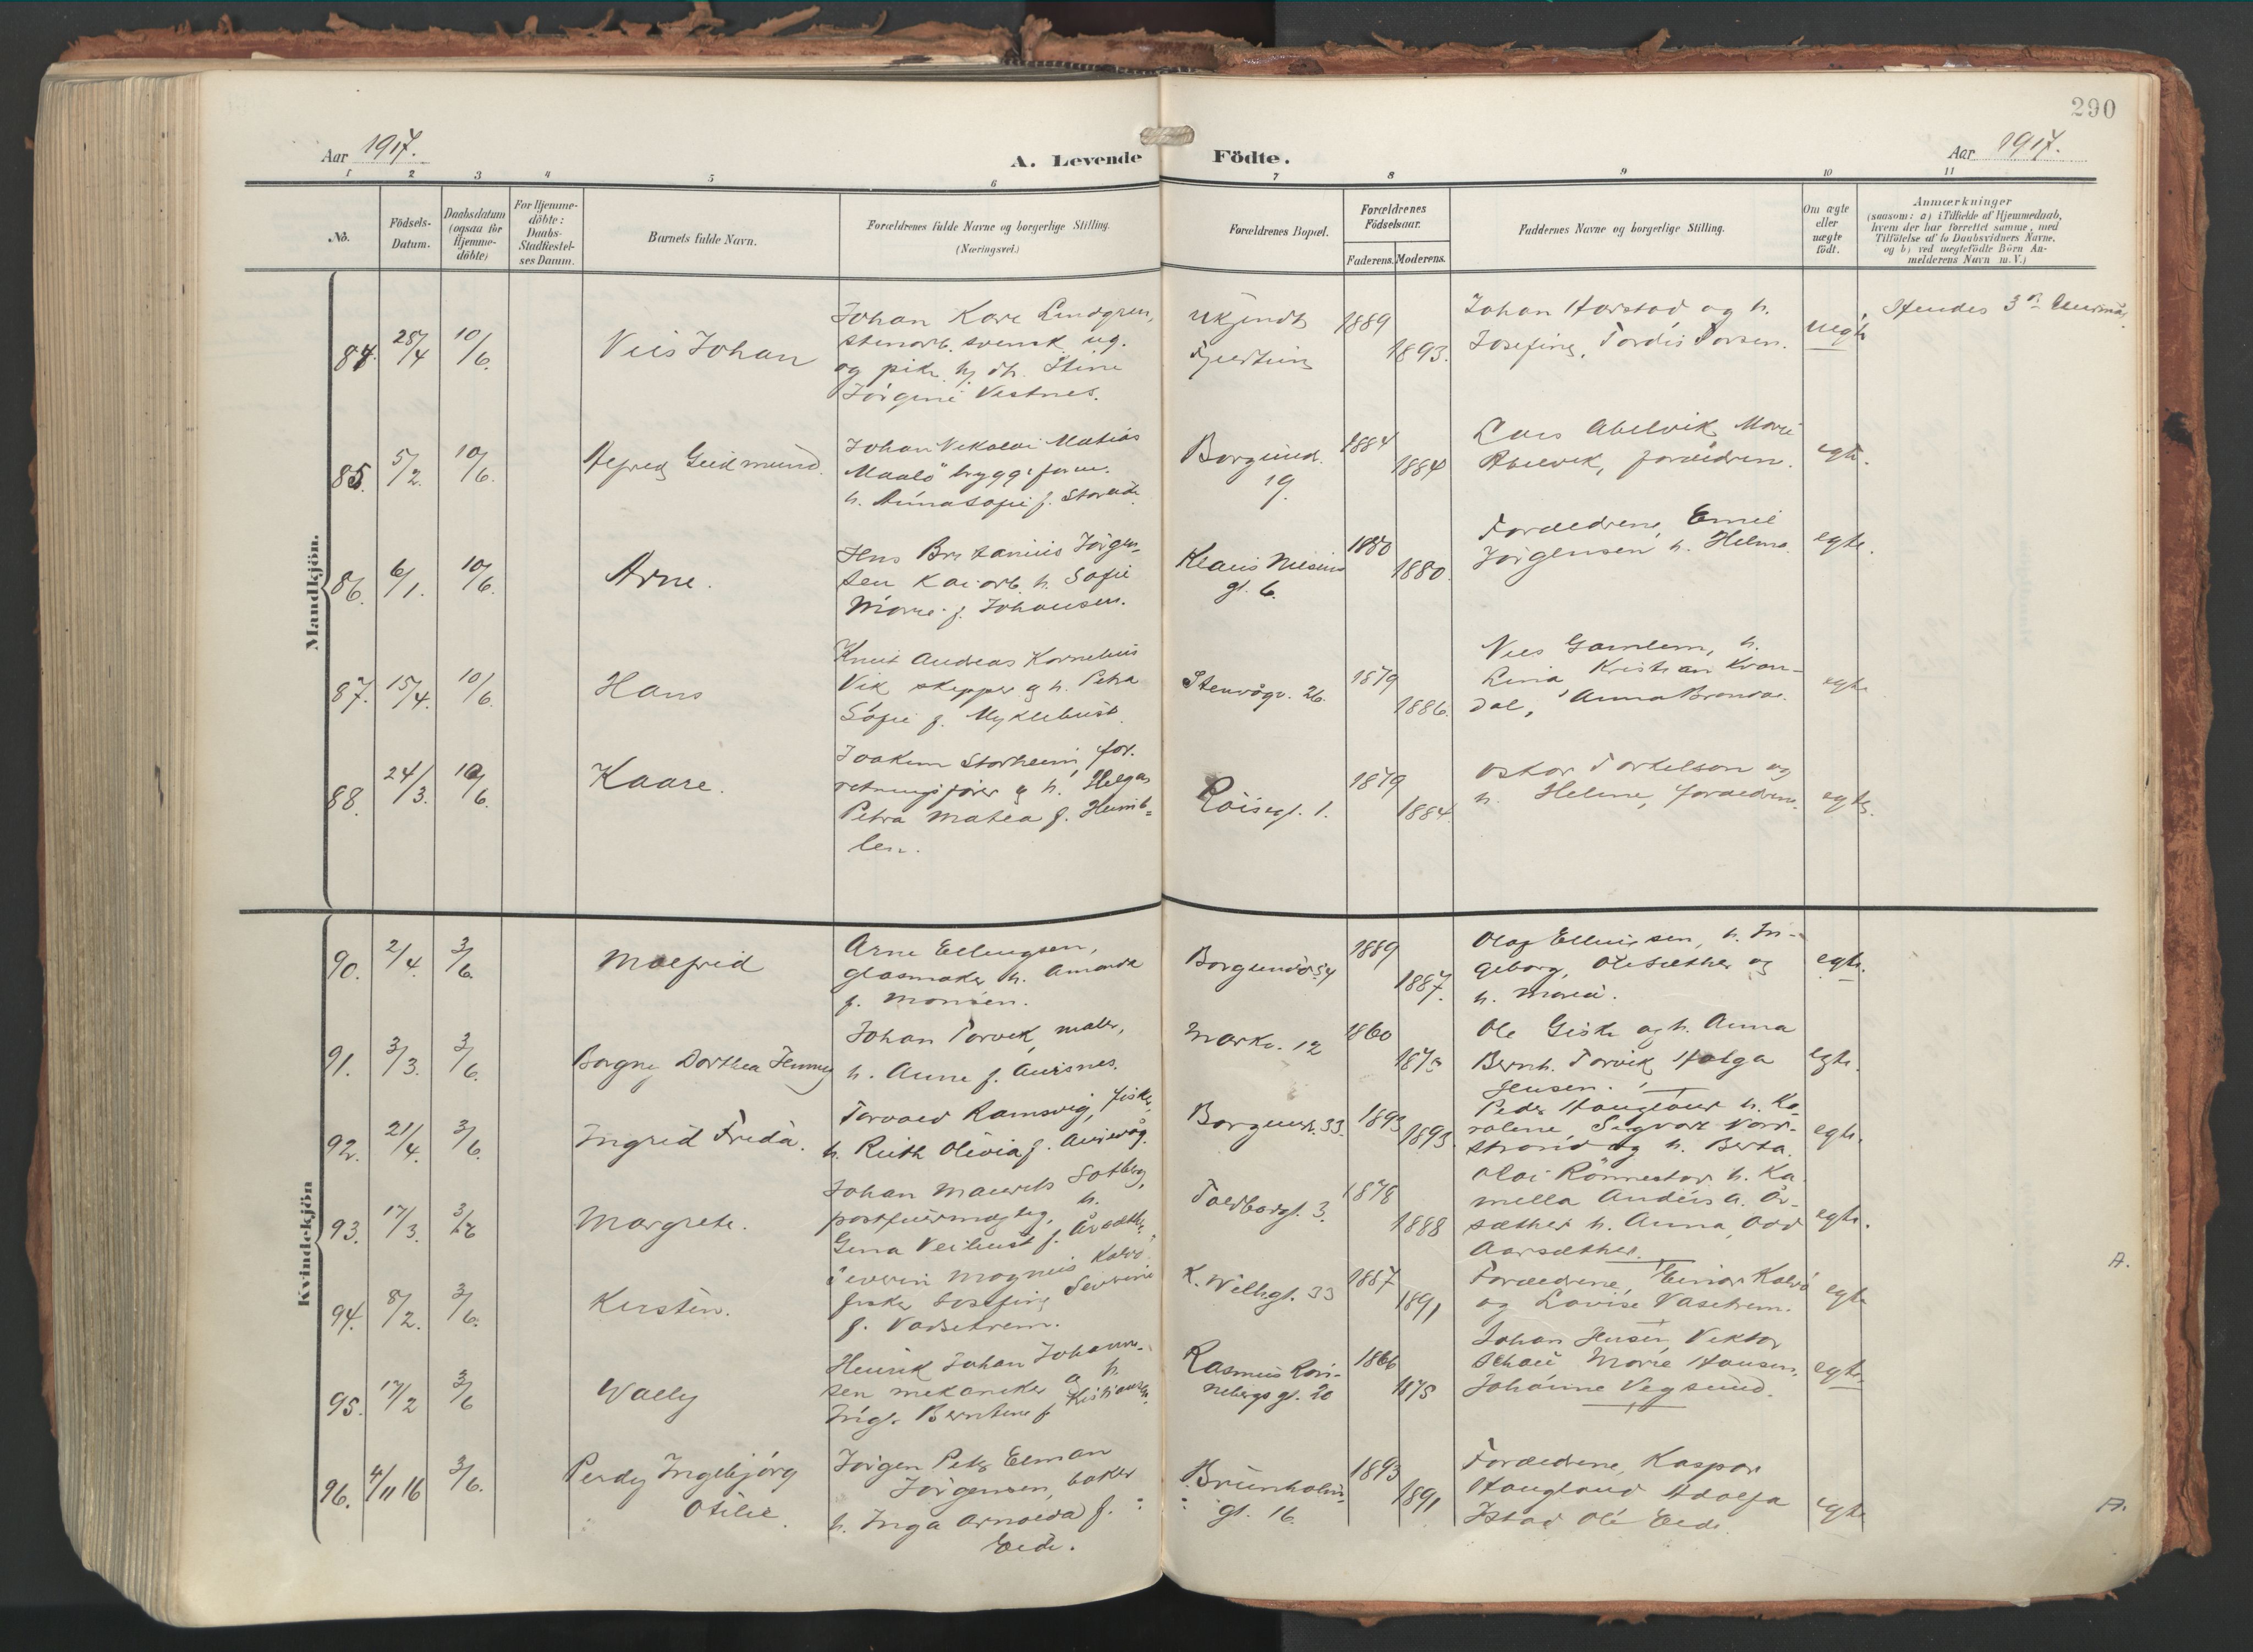 290
Aar 1917.
A. Levende Födte.
Aar 1917.
1 2 3 4 5 6 7 8 9 10 11
No.
Födsels-
Datum.
Daabsdatum
(ogsaa for
Hjemme-
döbte)
For Hjemme-
döbte:
Daabs-
Stadfæstel-
ses Datum.
Barnets fulde Navn.
Forældrenes fulde Navne og borgerlige Stilling.
(Næringsvei.)
Forældrenes Bopæl.
Forældrenes
Födselsaar.
Faderens. Moderens.
Faddernes Navne og borgerlige Stilling.
Om ægte
eller
uægte
födt.
Anmærkninger
(saasom: a) i Tilfælde af Hjemmedaab,
hvem der har forrettet samme, med
Tilföielse af to Daabsvidners Navne,
og b) ved uægtefödte Börn An-
melderens Navn m.V.)
Mandkjön.
84. 28/4 10/6. Johan
Johan Karl Lindgren,
stenarb. svensk ug.
og pike Stine
Jörgine Vestnes.
Ukjendt
1889
1893.
Johan Harstad og h.
Josefine, Tordis Torsen.
uegte
Hendes 3
85. 5/2. 10/6. Alfred Geidmund.
Johan Nikolai Matias
Maalö bryggeform.
h. Anna Sofie f.
Borgund.
19.
1884
1884
Lars Abelvik, Marie
Abelvik, foraeldren.
egte.
86. 6/1. 10/6. Arne.
Jens Jörgen-
sen Kaiarb. h. Sofie
Marie f. Johansen.
Klaus Nilsens
gt. 6.
1880
1880.
Foraeldrene, Emil
Jörgensen h. Helma.
egte.
87. 15/4. 10/6. Hans
Knut Andreas Kornelius
Vik skipper g h. Petra
Sofie f. Myklebust.
Stenvågv. 26.
1879
1886.
Nils Gamlem, h.
Lina Kristian Kvan-
dal, Anna
egte
88. 24/3. 10/6. Kaare.
Joakim Storheim, for.
retningsförer g h. Helga
Petra Matea f. Humb-
len.
Röisegt. 1.
1879
1884.
Oskar Torkelson og
h. Helene, foraeldrene.
egte.
Kvindekjön
90. 2/4. 3/6. Malfrid
Arne Ellingsen,
glasmaker h. Amanda
f. Monsen.
Borgundv 54
1889
1887.
Olaf Ellingsen, h. In-
geborg, Ole Sæther og
h. Marie.
egte.
91. 3/3. 3/6. Borgny Dorthea Jenny
Johan Torvik, maler,
h. Anne f. Aursnes.
Markv. 12
1860
Ole Giske og h. Anna
Bernh. Torvik, Helga
Jensen.
egte.
92. 21/4. 3/6. Ingrid Frida.
Torvald Ramsvig, fisker,
h. Ruth Olivia f.
Borgundv. 33.
1893
1893
Peder Haugland h. Ka-
roline Sigvart Nord-
strand og h. Berta.
egte.
93. 17/3. 3/6 Margrete.
Johan Maurits Solberg,
h.
Gina
Toldbodgt. 3.
1878
1888
Olai Rönnestad h. Ka-
mella Andeus A. År-
sæther h. Anna, Odd
Aarsæther.
egte.
A.
94. 8/2. 3/6. Kirsten.
Severin Magnus Kalvö
fisker Josefine Severine
f. Vadsetrem.
K. Wilhgt. 33
1887
1891
Foraeldrene, Einar Kalvö
og Lovise Vasetrem.
egte
95. 17/2 3/6 Wally
Henrik Johan Johann-
sen mekaniker g h.
Inga Berntine f. Kristiansen.
Rasmus Rön-
nebergs gt. 20
1866
1875
Johan Jensen, Viktor
Schau Marie Hansen,
Johanne Vegsund.
egte.
96. 4/11 16 3/6. Perdy Ingebjörg
Otilie.
Jörgen Peter Elman
Jörgensen, baker
h. Inga Arnolda f.
Eide.
Brunholm-
gt. 16.
1893
1891
Foraeldrene, Kaspar
Haugland Adolfa
Istad Ole Eide.
egte
A.